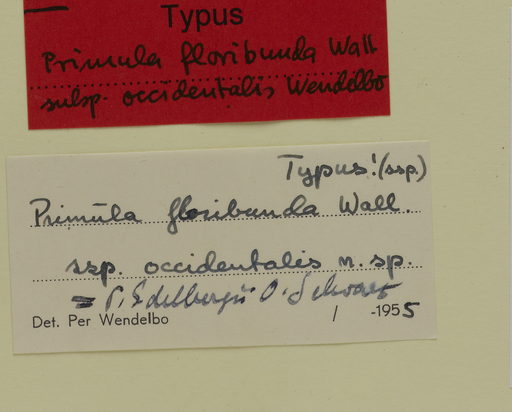 Typus
Primula floribunda Wall
subsp. occidentalis Wendelbo
Typus! (ssp.)
Primula floribunda Wall.
ssp. occidentalis n. sp.
= P. Edelbergii O. Schwarz
Det. Per Wendelbo / -1955